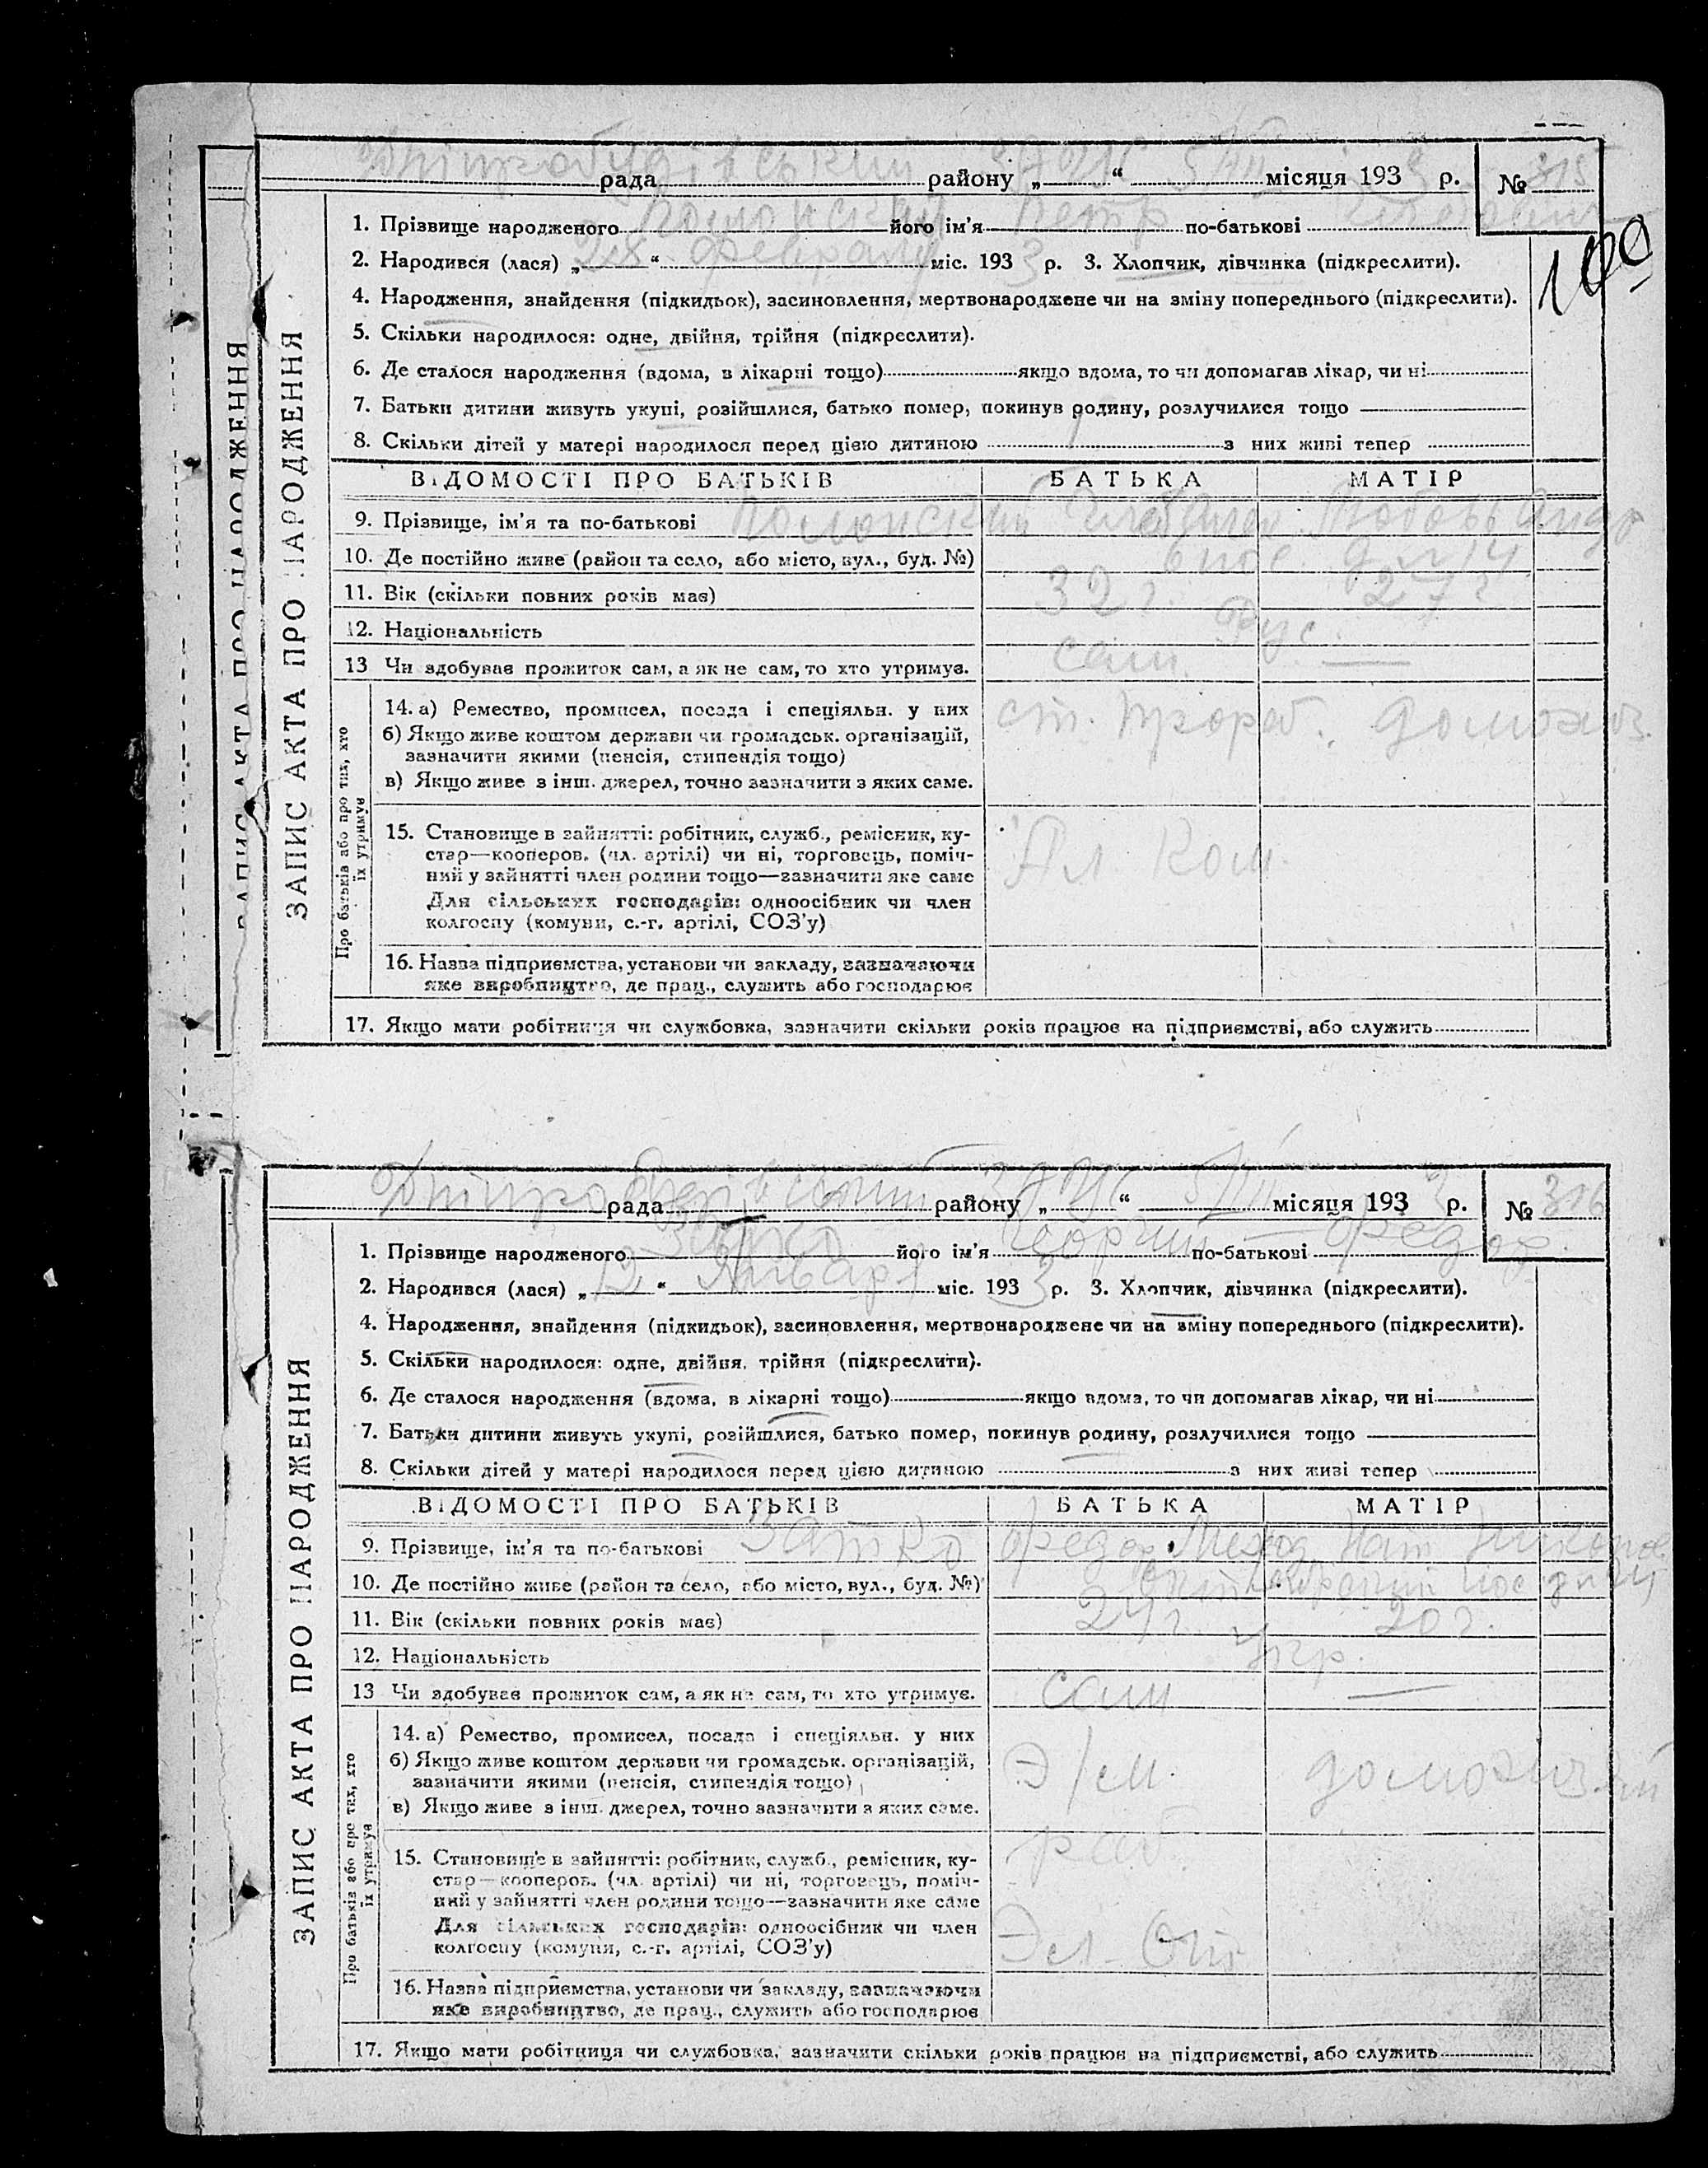 рада району „ “ місяця 193 3 р. № 315
1. Прізвище народженого Полонский його ім'я Петр по-батькові
100
2. Народився (лася) „ 28 “ февраля міс. 193 3 р. 3. Хлопчик, дівчинка (підкреслити).
4. Народження, знайдення (підкидьок), засиновлення, мертвонароджене чи на зміну попереднього (підкреслити).
5. Скільки народилося: одне, двійня, трійня (підкреслити).
6. Де сталося народження (вдома, в лікарні тощо) якщо вдома, то чи допомагав лікар, чи ні
7. Батьки дитини живуть укупі, розійшлися, батько помер, покинув родину, розлучилися тощо
8. Скільки дітей у матері народилося перед цією дитиною з них живі тепер
ЗАПИС АКТА ПРО НАРОДЖЕННЯ
ЗАПИС АКТА ПРО НАРОДЖЕННЯ
ВІДОМОСТІ ПРО БАТЬКІВ БАТЬКА МАТІР
9. Прізвище, ім'я та по-батькові Полонский Любовь Андр
10. Де постійно живе (район та село, або місто, вул., буд. №) 6 пос. д № 14
11. Вік (скільки повних років має) 32 г. 27 г
12. Національність Рус.
13 Чи здобував прожиток сам, а як не сам, то хто утримує. сам. —
Про батьків або про тих, хто їх утримує
14. а) Ремество, промисел, посада і спеціяльн. у них ст. прораб. домохоз.
б) Якщо живе коштом держави чи громадськ. організацій,
зазначити якими (пенсія, стипендія тощо)
в) Якщо живе з інш. джерел, точно зазначити з яких саме.
15. Становище в зайнятті: робітник, служб., ремісник, ку-
стар—кооперов. (чл. артілі) чи ні, торговець, поміч- Ал. Ком.
ний у зайнятті член родини тощо—зазначити яке саме
Для сільських господарів: одноосібник чи член
колгоспу (комуни, с.-г. артілі, СОЗ'у)
16. Назва підприємства, установи чи закладу, зазначаючи
яке виробництво, де прац., служить або господарює
17. Якщо мати робітниця чи службовка, зазначити скільки років працює на підприємстві, або служить
рада району „ “ місяця 193 3 р. № 316
1. Прізвище народженого Затко його ім'я Георгий — по-батькові Федор.
2. Народився (лася) „ 12 “ Января міс. 193 3 р. 3. Хлопчик, дівчинка (підкреслити).
4. Народження, знайдення (підкидьок), засиновлення, мертвонароджене чи на зміну попереднього (підкреслити).
5. Скільки народилося: одне, двійня, трійня (підкреслити).
6. Де сталося народження (вдома, в лікарні тощо) якщо вдома, то чи допомагав лікар, чи ні
7. Батьки дитини живуть укупі, розійшлися, батько помер, покинув родину, розлучилися тощо
8. Скільки дітей у матері народилося перед цією дитиною з них живі тепер
ЗАПИС АКТА ПРО НАРОДЖЕННЯ
ВІДОМОСТІ ПРО БАТЬКІВ БАТЬКА МАТІР
9. Прізвище, ім'я та по-батькові Затко Федор Нат
10. Де постійно живе (район та село, або місто, вул., буд. №)
11. Вік (скільки повних років має) 24 г. 20 г.
12. Національність Укр.
13 Чи здобував прожиток сам, а як не сам, то хто утримує. сам —
Про батьків або про тих, хто їх утримує
14. а) Ремество, промисел, посада і спеціяльн. у них
б) Якщо живе коштом держави чи громадськ. організацій, Э/м. домохоз.
зазначити якими (пенсія, стипендія тощо)
в) Якщо живе з інш. джерел, точно зазначити з яких саме.
15. Становище в зайнятті: робітник, служб., ремісник, ку- раб.
стар—кооперов. (чл. артілі) чи ні, торговець, поміч-
ний у зайнятті член родини тощо—зазначити яке саме
Для сільських господарів: одноосібник чи член
колгоспу (комуни, с.-г. артілі, СОЗ'у)
16. Назва підприємства, установи чи закладу, зазначаючи
яке виробництво, де прац., служить або господарює
17. Якщо мати робітниця чи службовка, зазначити скільки років працює на підприємстві, або служить